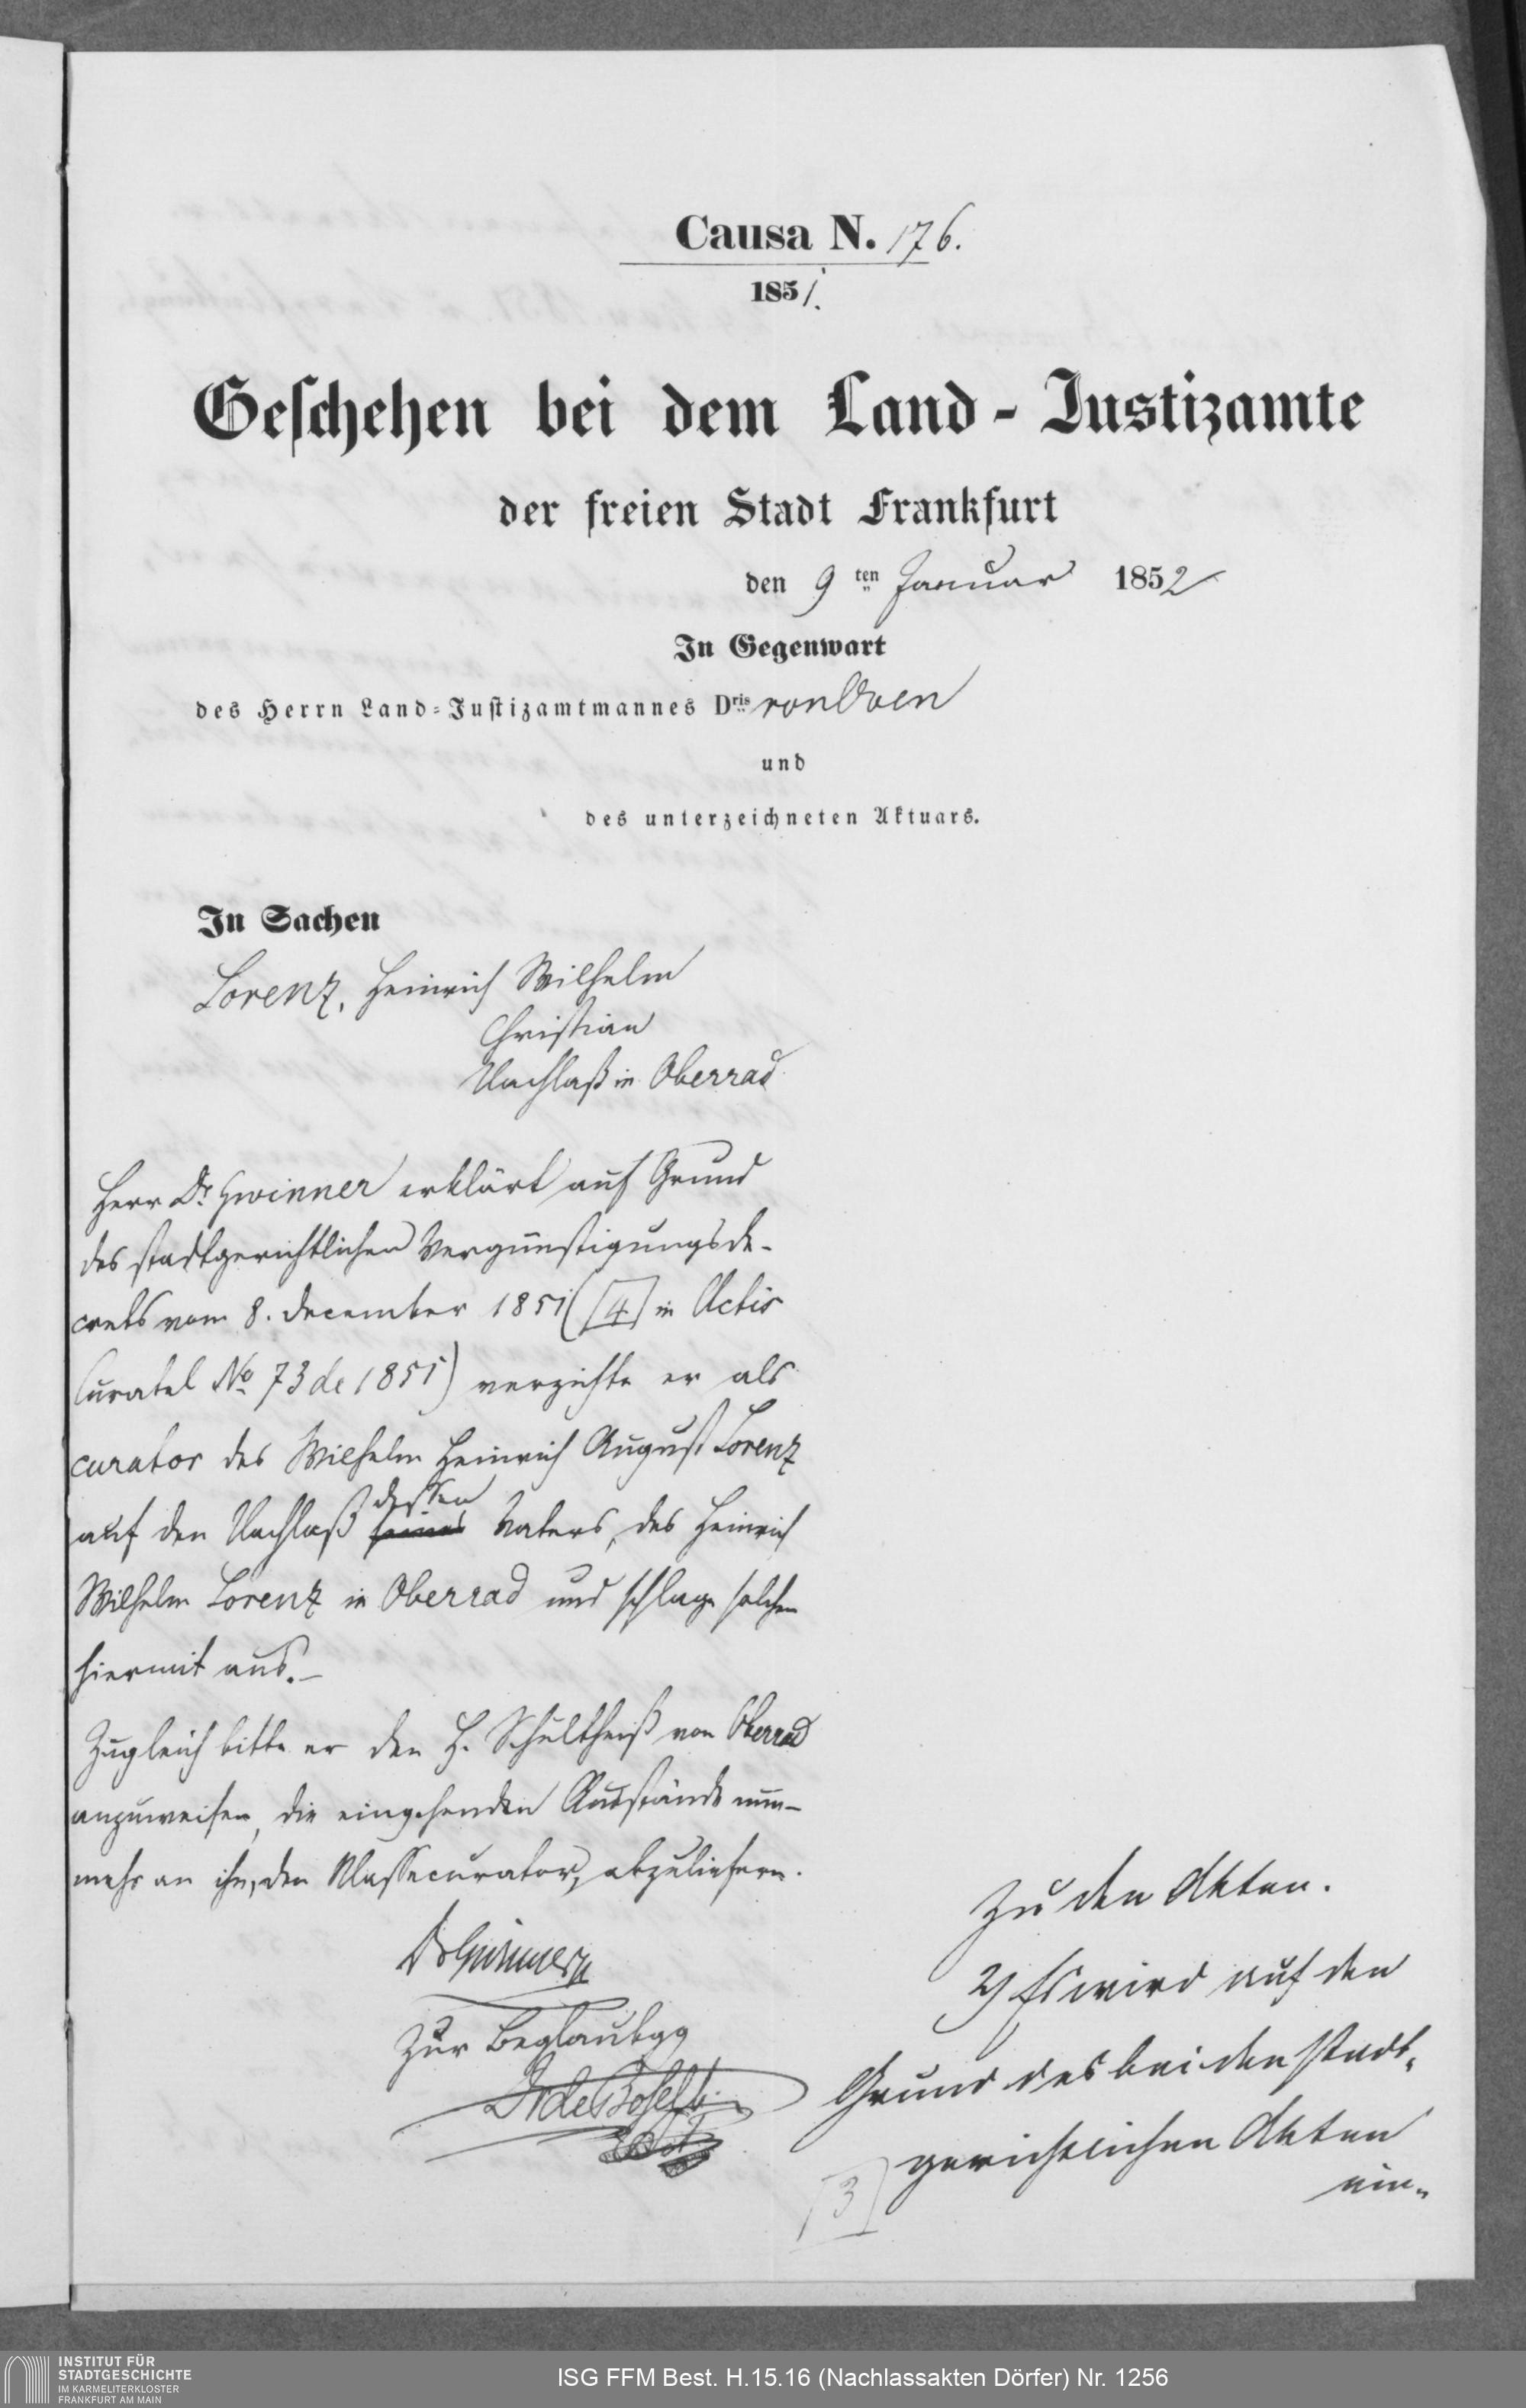 Causa N. 176.
1851.
Geschehen bei dem Land-Justizamte
der freien Stadt Frankfurt
den 9ten Januar 1852
In Gegenwart
des Herrn Land-Justizamtmannes Dris von Oven
und
des unterzeichneten Aktuars.
In Sachen
Lorenz, Heinrich Wilhelm
Christian
Nachlaß in Oberrad
Herr Dr. Gwinner erklärt auf Grund
des stadtgerichtlichen Vergünstigungsde-
crets vom 8. December 1851 ([4] in Actis
Curatel No. 73 de 1851) verzichte er als
curator des Wilhelm Heinrich August Lorenz
auf den Nachlaß seines dessen Vaters, des Heinrich
Wilhelm Lorenz in Oberrad und schlage solchen
hiermit aus.–
Zugleich bitte er den H. Schultheiß von Oberrad
anzuweisen, die eingehenden Ausstände nun-
mehr an ihn, den Massecurator, abzuliefern.
Dr Gwinner
Zur Beglaubgg
Zu den Akten.
2) Es wird auf den
Grund des bei den stadt-
gerichtlichen Akten
ein-
[3]
INSTITUT FÜR
STADTGESCHICHTE
IM KARMELITERKLOSTER
FRANKFURT AM MAIN
ISG FFM Best. H.15.16 (Nachlassakten Dörfer) Nr. 1256